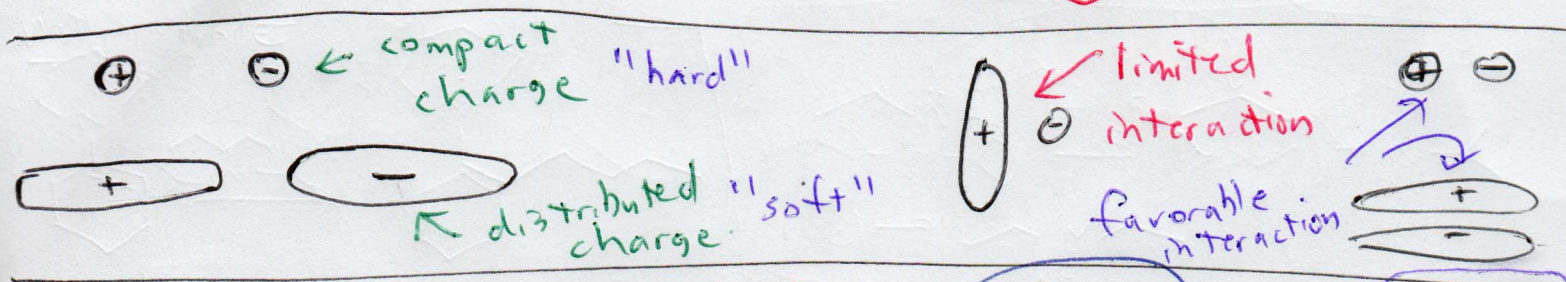 ⊕ ⊖ ← compact
charge "hard"
+ − ↖ distributed "soft"
charge
+ ⊖ limited
interaction
⊕ ⊖
favorable
interaction
+
−